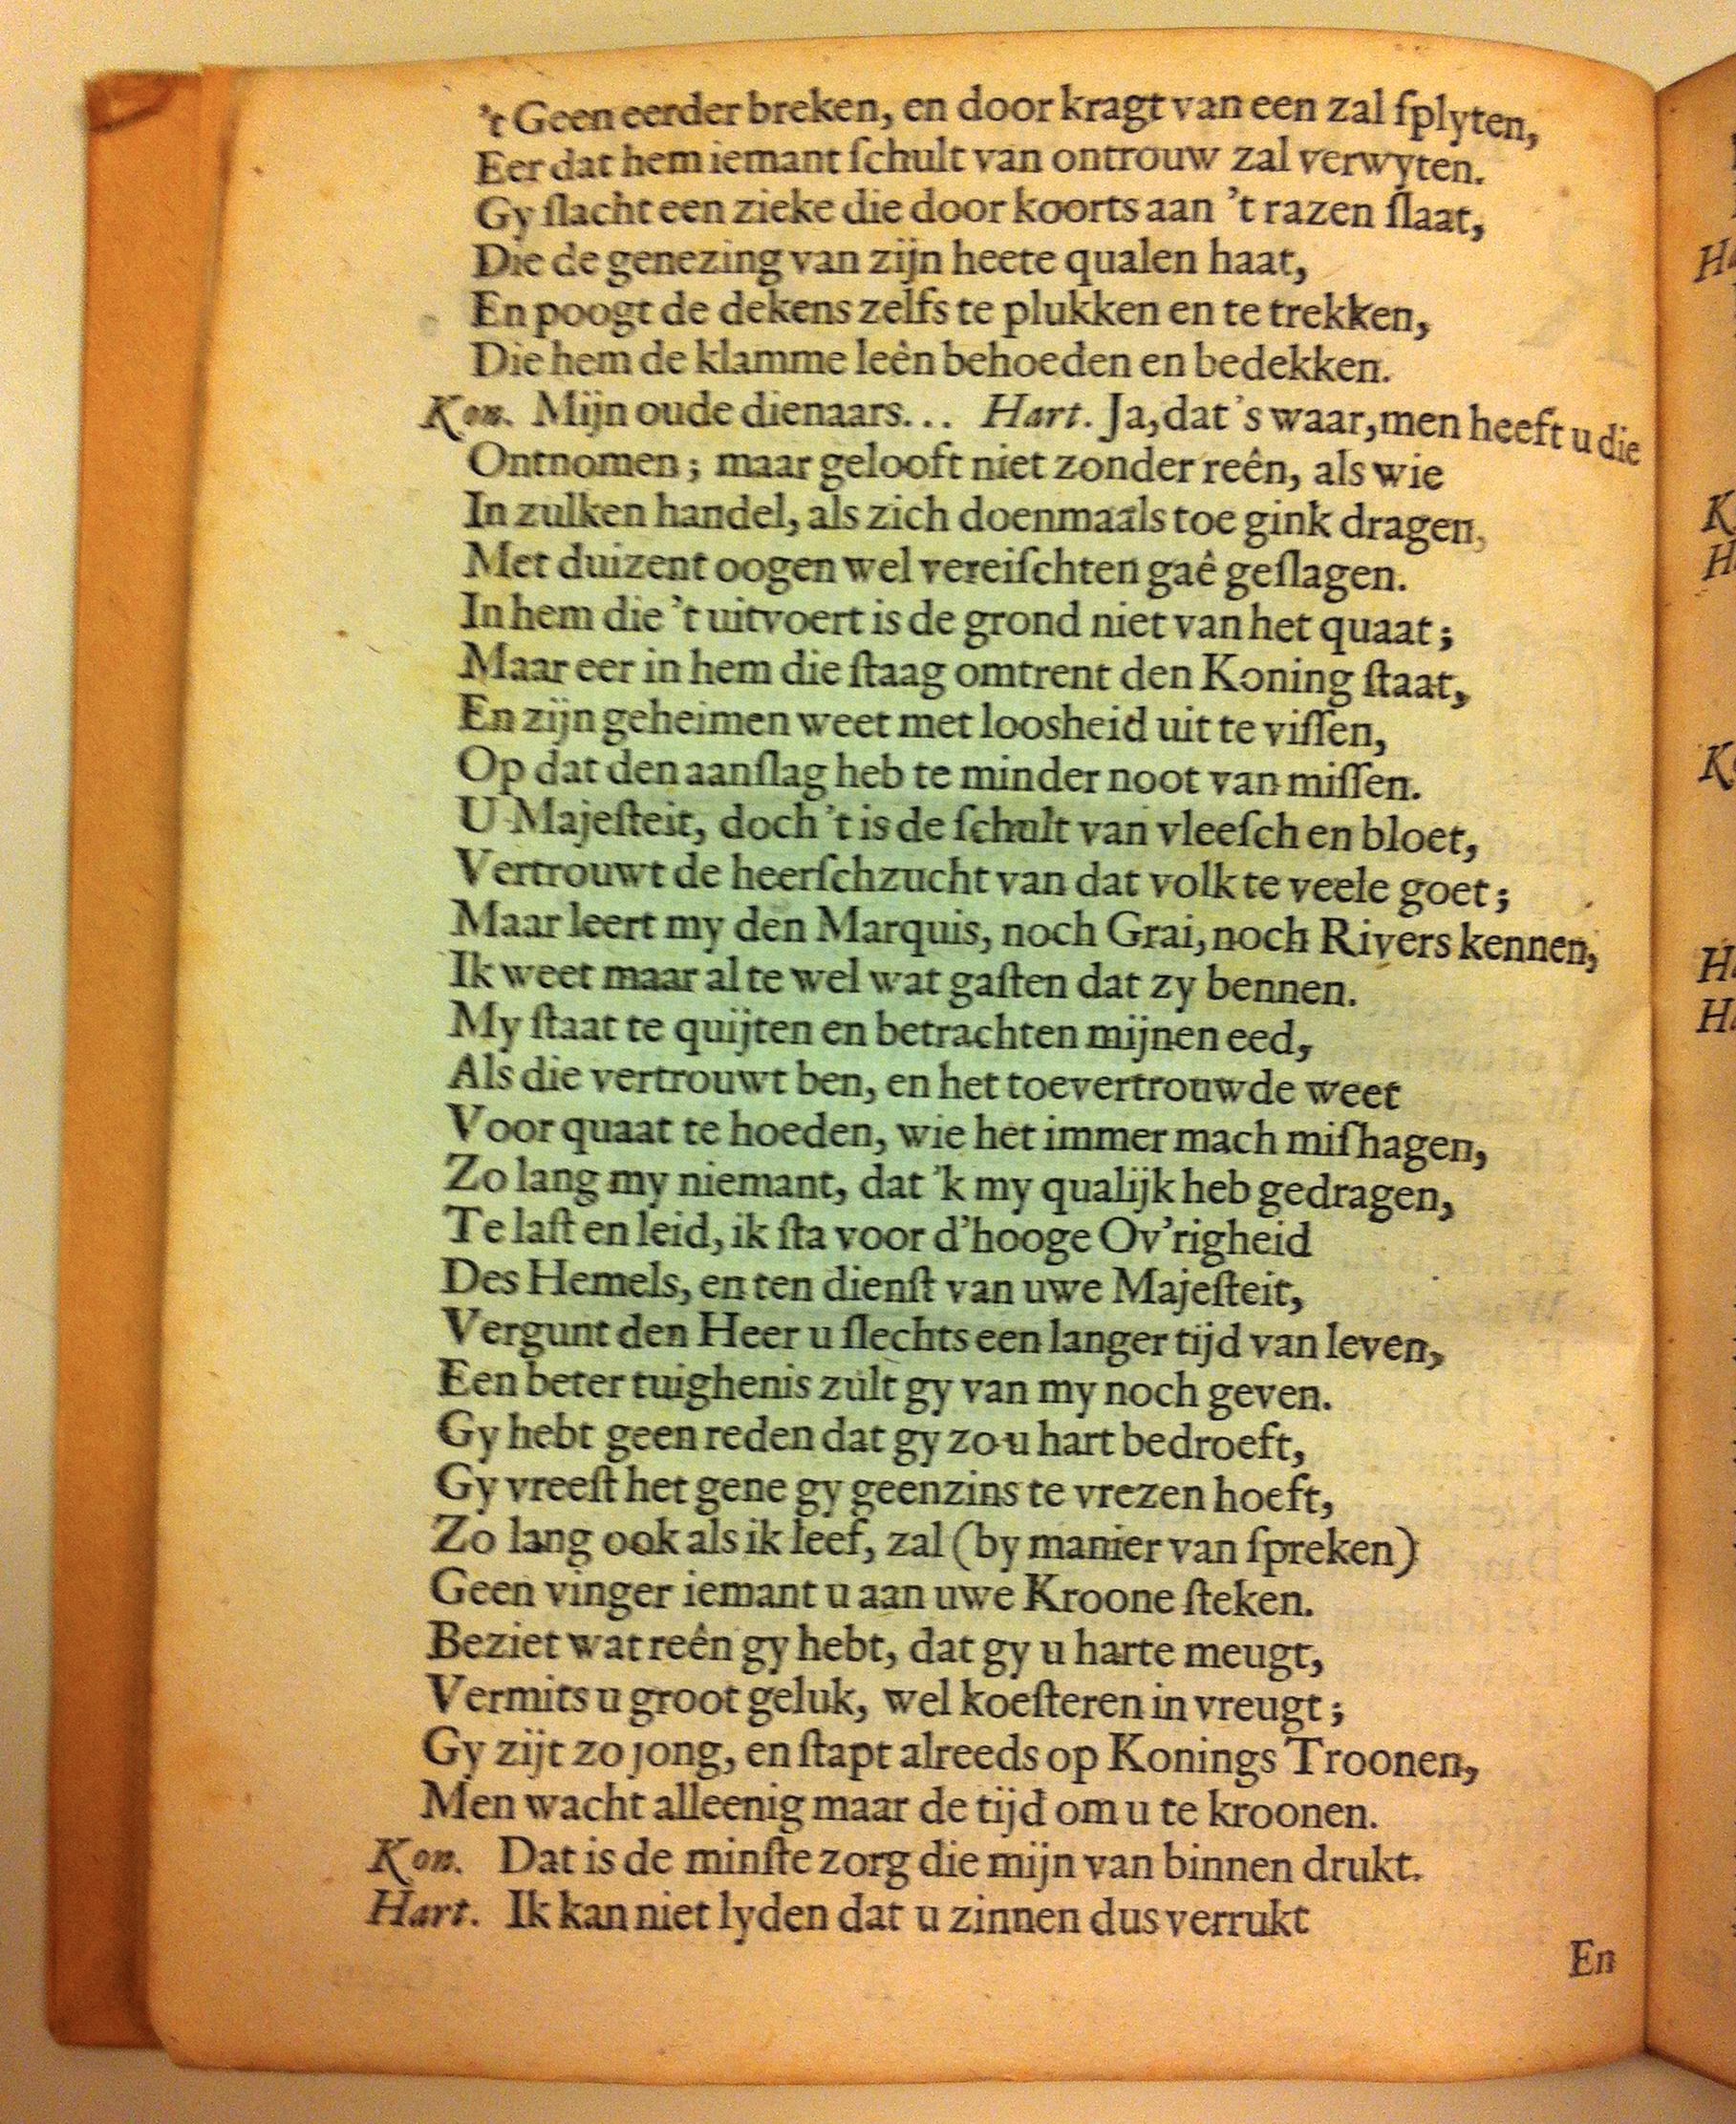 't Geen eerder breken, en door kragt van een zal ſplyten,
Eer dat hem iemant ſchult van ontrouw zal verwyten.
Gy ſlacht een zieke die door koorts aan 't razen ſlaat,
Die de genezing van zijn heete qualen haat,
En poogt de dekens zelfs te plukken en te trekken,
Die hem de klamme leên behoeden en bedekken.
Kon. Mijn oude dienaars... Hart. Ja, dat's waar, men heeft u die
Ontnomen; maar gelooft niet zonder reên, als wie
In zulken handel, als zich doenmaals toe gink dragen,
Met duizent oogen wel vereiſchten gaê geſlagen.
In hem die 't uitvoert is de grond niet van het quaat;
Maar eer in hem die ſtaag omtrent den Koning ſtaat,
En zijn geheimen weet met loosheid uit te viſſen,
Op dat den aanſlag heb te minder noot van miſſen.
U Majeſteit, doch 't is de ſchult van vleeſch en bloet,
Vertrouwt de heerſchzucht van dat volk te veele goet;
Maar leert my den Marquis, noch Grai, noch Rivers kennen,
Ik weet maar al te wel wat gaſten dat zy bennen.
My ſtaat te quijten en betrachten mijnen eed,
Als die vertrouwt ben, en het toevertrouwde weet
Voor quaat te hoeden, wie het immer mach miſhagen,
Zo lang my niemant, dat 'k my qualijk heb gedragen,
Te laſt en leid, ik ſta voor d'hooge Ov'righeid
Des Hemels, en ten dienſt van uwe Majeſteit,
Vergunt den Heer u ſlechts een langer tijd van leven,
Een beter tuighenis zult gy van my noch geven.
Gy hebt geen reden dat gy zo u hart bedroeft,
Gy vreeſt het gene gy geenzins te vrezen hoeft,
Zo lang ook als ik leef, zal (by manier van ſpreken)
Geen vinger iemant u aan uwe Kroone ſteken.
Beziet wat reên gy hebt, dat gy u harte meugt,
Vermits u groot geluk, wel koeſteren in vreugt;
Gy zijt zo jong, en ſtapt alreeds op Konings Troonen,
Men wacht alleenig maar de tijd om u te kroonen.
Kon. Dat is de minſte zorg die mijn van binnen drukt.
Hart. Ik kan niet lyden dat u zinnen dus verrukt
En